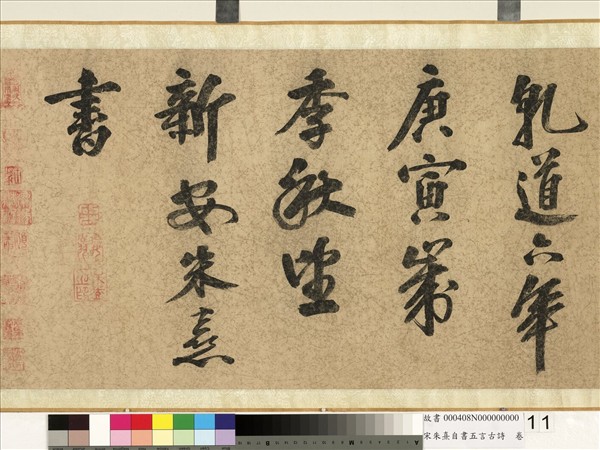 乹道六年
庚寅歲
季秋望
新安朱熹
書
故書 000408N000000000
宋朱熹自書五言古詩 卷
11